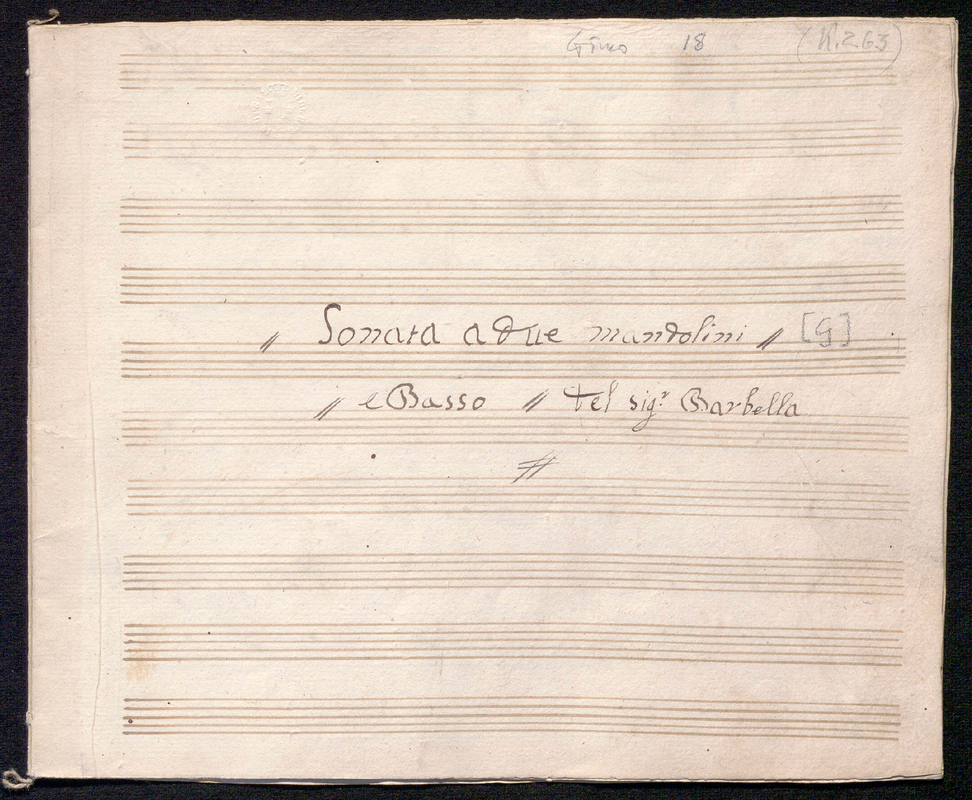 Gimo 18 (R.263)
// Sonata a due mandolini // [G]
// e Basso // del sig.r Barbella